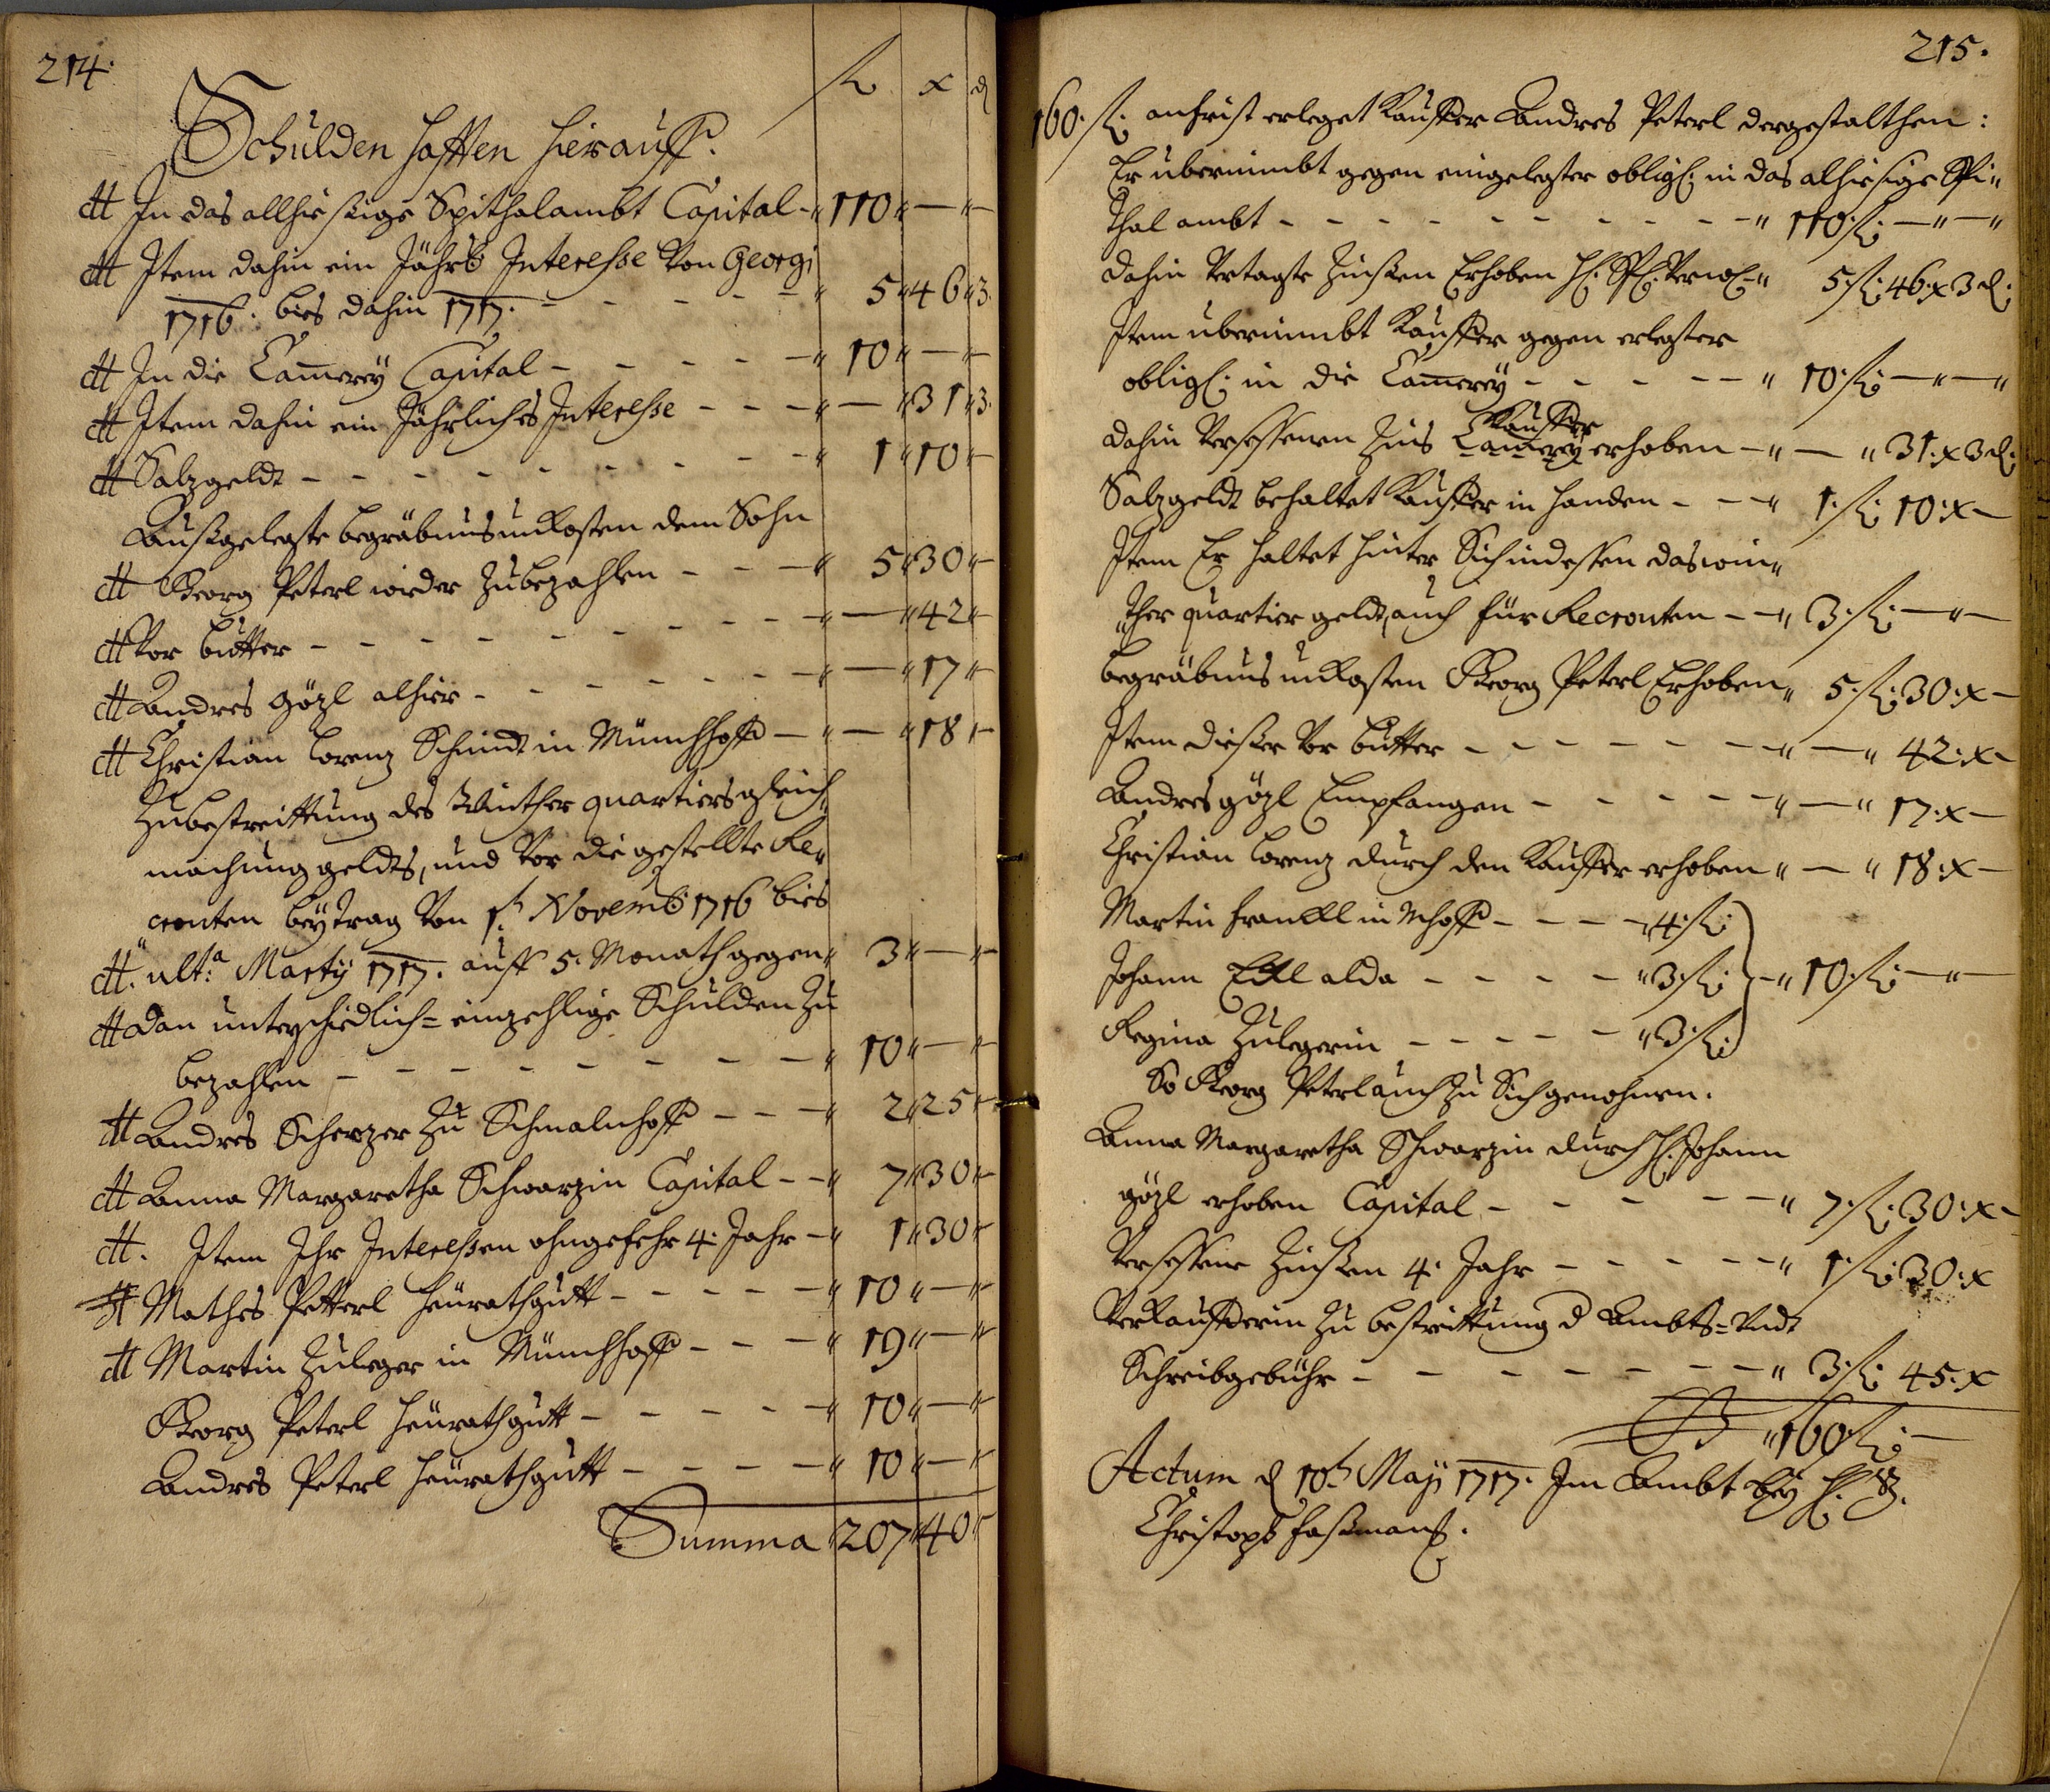 214.
fl x d
Schulden hafften hierauff.
dt In das allhiesige Spithalambt Capital - " 110 " — " —
dt Item dahin ein Jährl: Interesse von Georgi
1716. bies dahin 1717. - - - - - " 5 " 46 " 3.
dt In die Camerey Capital - - - - - " 10 " — " —
dt Item dahin ein Jährliches Interesse - - - " — " 31 " 3.
dt Salzgeldt - - - - - - - - - " 1 " 10 " —
Außgelegte begräbnus unkosten dem Sohn
dt Georg Peterl wieder zubezahlen - - - " 5 " 30 " —
dt Vor butter - - - - - - - - " — " 42 " —
dt Andres Gözl alhier - - - - - - " — " 17 " —
dt Christian Lorenz Schmidt in Münchhoff - " — " 18 " —
Zubestreittung des Winther quartiers gleich"
machung geldts, und vor die gestellte Re"
"crouten beytrag von 1t Novemb 1716 bies
dt. ult:a Marty 1717. auff 5. Monath gegen " 3 " — " —
dt dan unterschiedlich= einzehlige Schulden zu
bezahlen - - - - - - - - " 10 " — " —
dt Andres Scherzer zu Schmalnhoff - - - " 2 " 25 " —
dt Anna Margaretha Schwarzin Capital - - " 7 " 30 " —
dt. Item Ihr Interessen ohngefehr 4. Jahr - " 1 " 30 " —
dt Mathes Petterl heürathgutt - - - - - " 10 " — " —
dt Martin Zuleger in Münchhoff - - - " 19 " — " —
Georg Peterl heürathgutt - - - - - " 10 " — " —
Andres Peterl heürathgutt - - - - - " 10 " — " —
Summa " 207 " 40 " —
215.
160. fl: anfrist erleget Kauffer Andres Peterl dergestalthen:
Er übernimbt gegen eingelegter oblig: in das alhiesige Spi"
thal ambt - - - - - - - - - - " 110 fl: — " — "
dahin vertagte Zinßen Erhoben H: 5 fl: 46. x 3 d:
Item übernimbt Kauffer gegen erlegter
oblig: in die Camerey - - - - - " 10 fl: — " — "
Kauffer
dahin versessenen Zins Camerey erhoben - " — " 31. x 3 d:
Salzgeldt behaltet Kauffer in handen - - - " 1. fl: 10. x —
Item Er haltet hinter Sich indessen das win"
"ther quartier geldt, auch für Recrouten - - " 3. fl: — " —
begräbnus unkosten Georg Peterl Erhoben " 5. fl: 30. x —
Item dießer vor butter - - - - - - - " — " 42. x —
Andres Gözl Empfangen - - - - - - " — " 17. x —
Christian Lorenz durch den Kauffer erhoben " — " 18. x —
Martin Franckl in Mhoff - - - - " 4. fl:
Johann Eckl alda - - - - " 3. fl: - " 10. fl: — " —
Regina Zulegerin - - - - - " 3. fl:
So Georg Peterl auch zu Sich genohmen.
Anna Margaretha Schwarzin durch H: Johann
Gözl erhoben Capital - - - - - - " 7. fl: 30. x —
Versessene Zinßen 4. Jahr - - - - - " 1. fl: 30. x
Verkaufferin zu bestreittung d Ambts= undt
Schreibgebühr - - - - - - - - " 3. fl: 45. x
" 160 fl: —
Actum d 10t May 1717. Im Ambt bey H: B.
Christoph Faßmann.